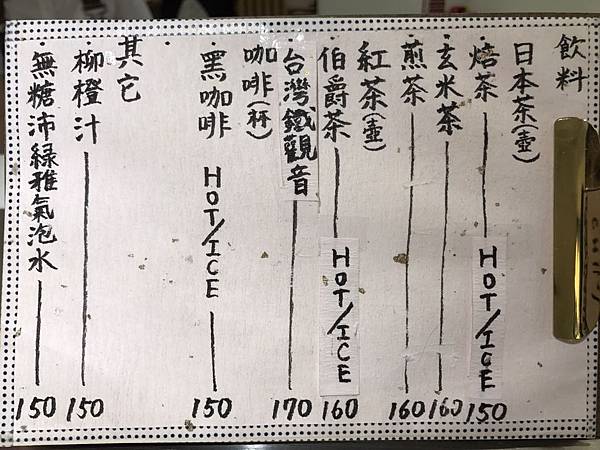 飲料
日本茶(壺)
焙茶 HOT/ICE 150
玄米茶 160
煎茶 160
紅茶(壺)
伯爵茶 HOT/ICE 160
台灣鐵觀音 170
咖啡(杯)
黑咖啡 HOT/ICE 150
其它
柳橙汁 150
無糖沛綠雅氣泡水 150